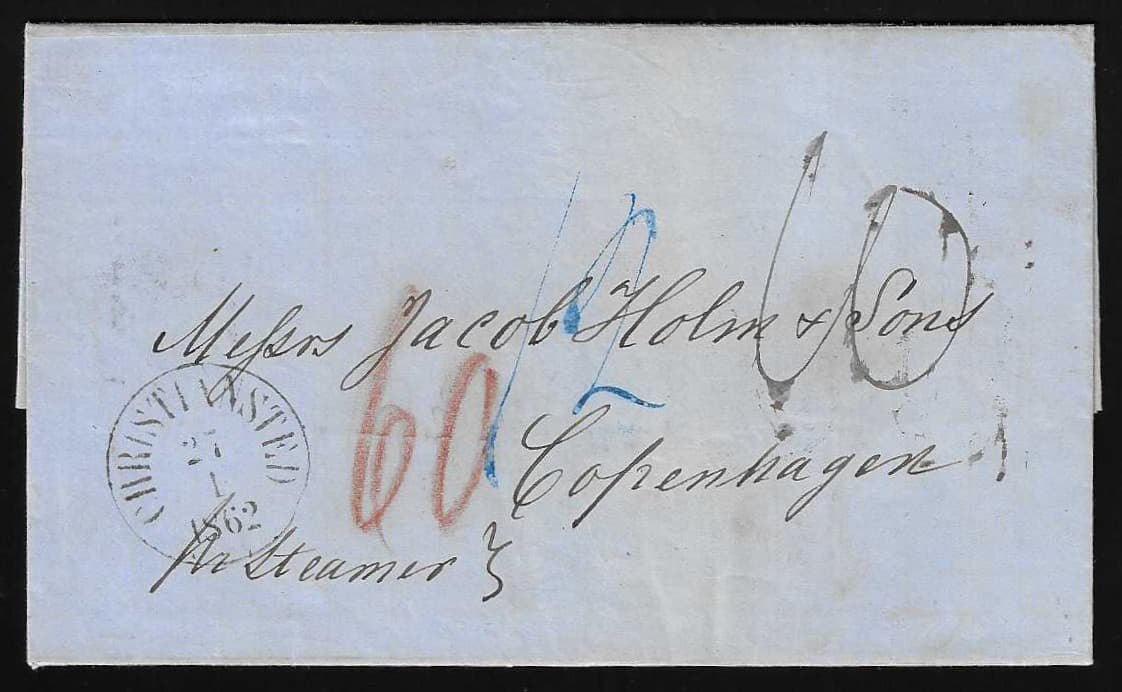 12
10
Messrs Jacob Holm & Sons
60
Copenhagen
CHRISTIANSTED
27
1
1862
Pr Steamer